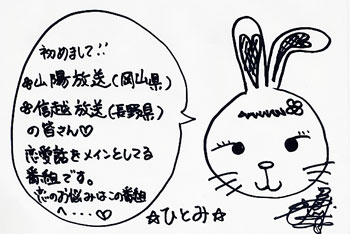 初めまして!!
山陽放送(岡山県)
信越放送(長野県)
の皆さん♡
恋愛話をメインとしてる
番組です。
恋のお悩みはこの番組
へ・・・・♡
☆ひとみ☆